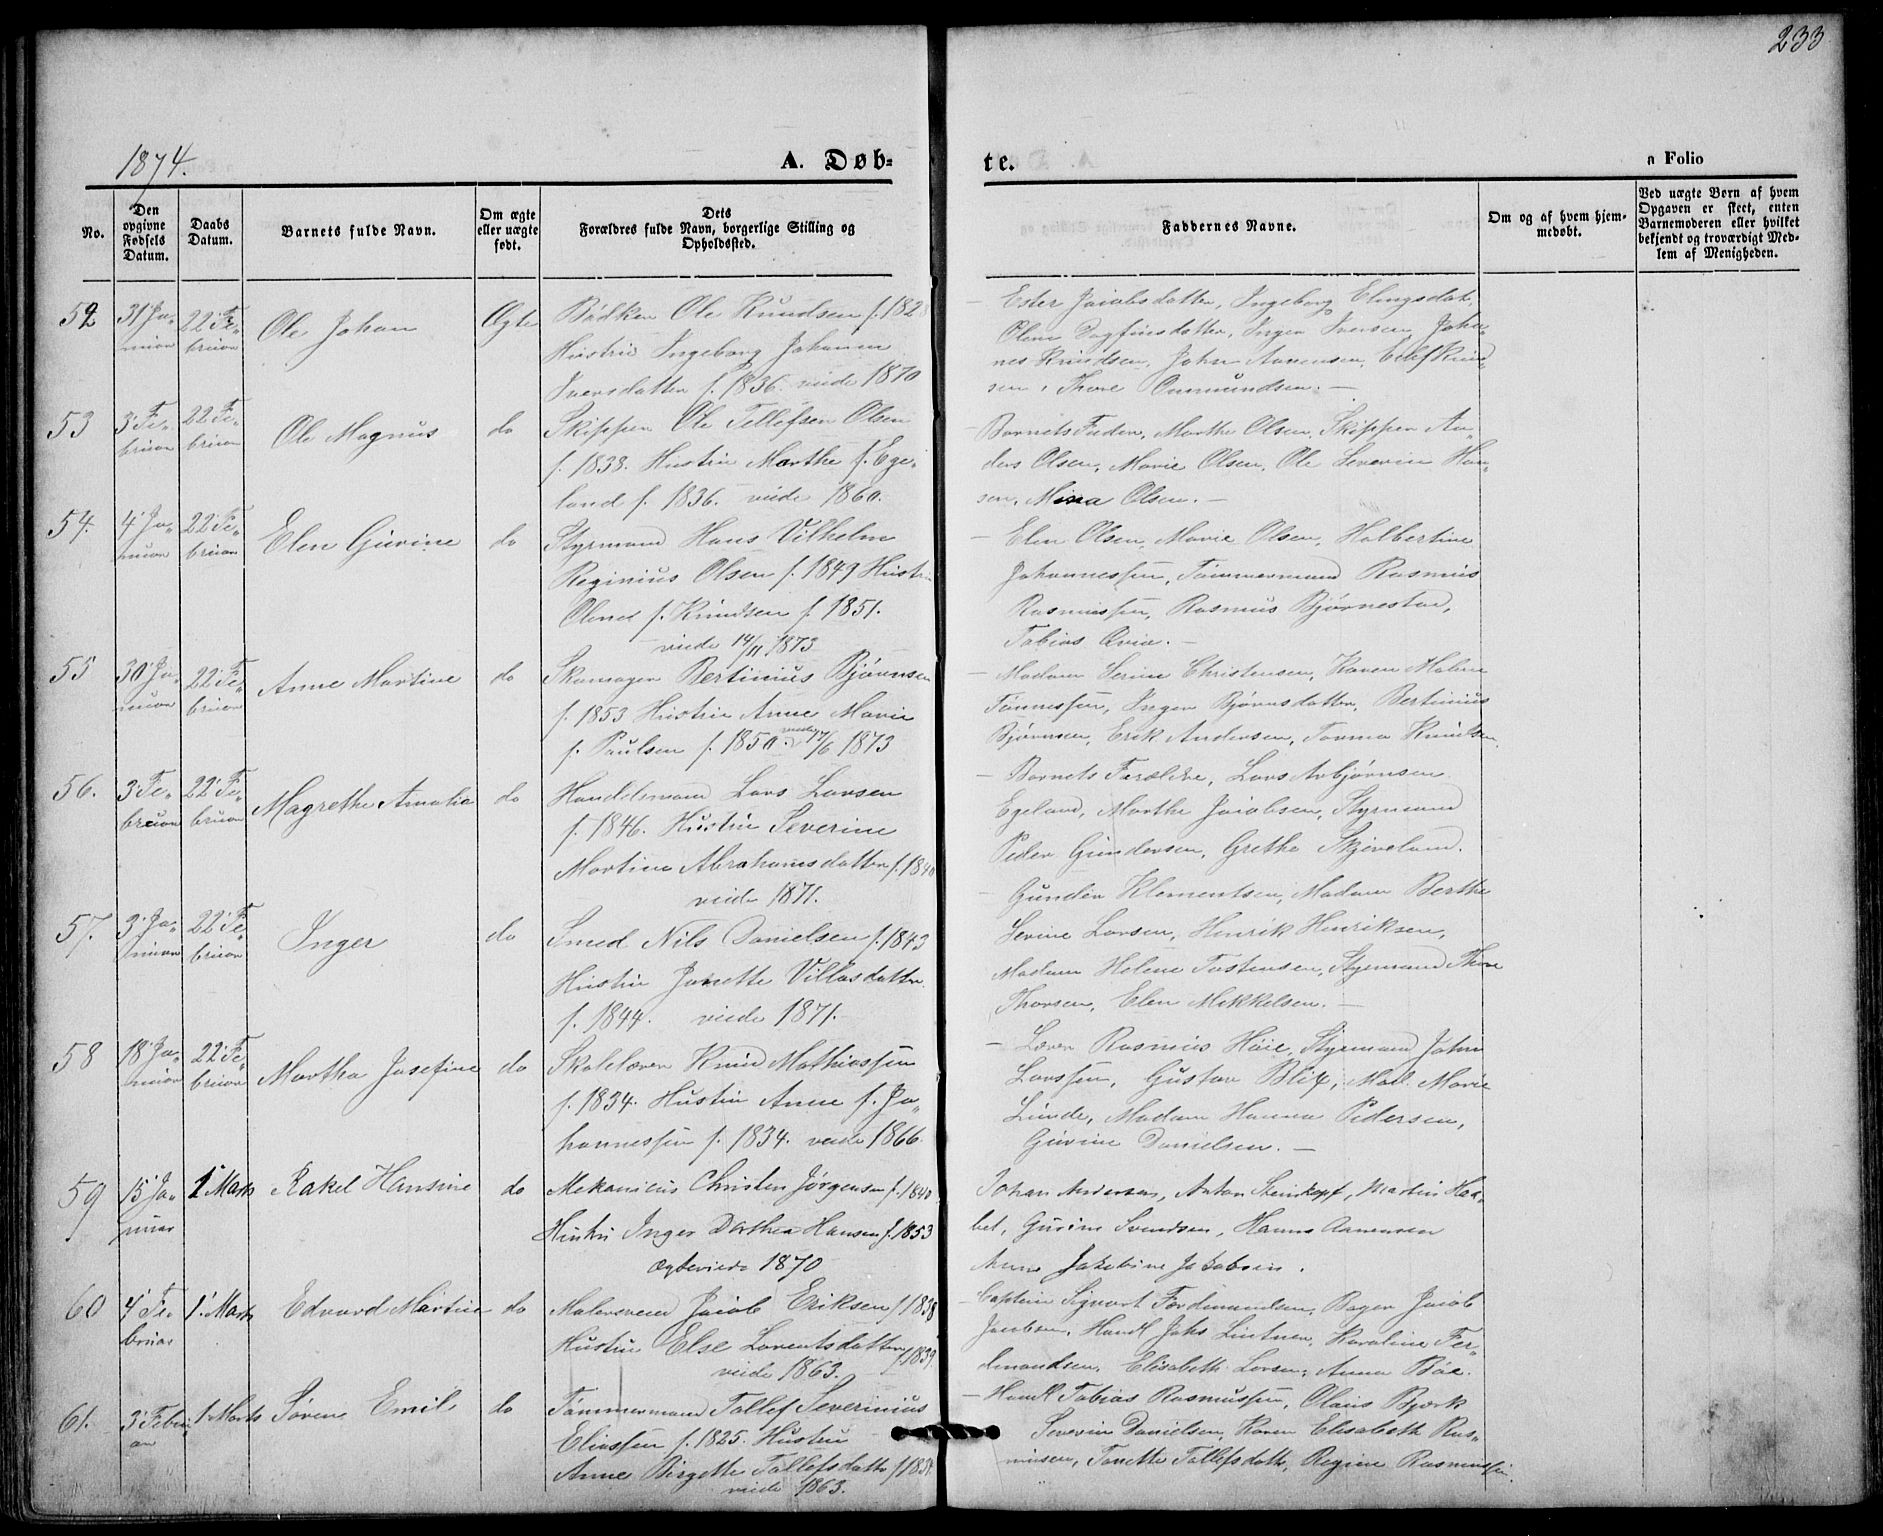 233
1874.
A. Døb-
te.
n Folio
No.
Den opgivne Fødsels Datum.
Daabs Datum.
Barnets fulde Navn.
Om ægte eller uægte født.
Dets
Forældres fulde Navn, borgerlige Stilling og
Opholdssted.
Faddernes Navne.
Om og af hvem hjem-
medøbt.
Ved uægte Børn af hvem
Opgaven er skeet, enten
Barnemoderen eller hvilket
bekjendt og troværdigt Med-
lem af Menigheden.
52 31' Ja- 22' Fe- Ole Johan Ægte Bødker Ole Knudsen f. 1828
nuar bruar
Hustru Ingeborg Johanne
Iversdatter f. 1836. viede 1870
Ester Jacobsdatter, Ingeborg Elingsdat.
Olene Dagfinsdatter, Inger Iversen, Johan-
nes Knudsen, John Aanensen, Elef Knud
sen, Thore Ommundsen. —
53 3' Fe- 22' Fe- Ole Magnus do Skipper Ole Tellefsen Olsen
bruar bruar
f. 1838. Hustru Marthe f. Ege-
land f. 1836. viede 1860.
Barnets Fader, Marthe Olsen, Skipper An-
ders Olsen, Marie Olsen, Ole Severin Han-
sen, Mina Olsen. —
54. 4' Ja- 22' Fe- Elen Gurine do Styrmand Hans Vilhelm
nuar bruar
Reginius Olsen f. 1849 Hustru
Olene f. Knudsen f. 1851.
viede 14/11 1873
— Elen Olsen, Marie Olsen, Halbertine
Johannessen, Tømmermand Rasmus
Rasmussen, Rasmus Bjørnestad,
Tobias Qvia. —
55 30' Ja- 22' Fe- Anne Martine do Skomager Bertinius Bjørnsen
nuar bruar
f. 1853 Hustru Anne Marie
f. Paulsen f. 1850. viede /6 1873
— Madam Serine Christensen, Karen Malene
Tønnessen, Inger Bjørnsdatter, Bertinius
Bjørnsen, Erik Andersen, Tomine Knudsen.
56. 3' Fe- 22' Fe- Magrethe Amalia do Handelsmand Lars Larsen
bruar bruar
f. 1846. Hustru Severine
Martine Abrahamsdatter f. 1840
viede 1871.
— Barnets Forældre, Lars Asbjørnsen
Egeland, Marthe Jacobsen, Styrmand
Peder Gundersen, Grethe Skjæveland.
57. 3' Ja- 22' Fe- Inger do Smed Nils Danielsen f. 1843
nuar bruar
Hustru Janette Villasdatter
f. 1844. viede 1871.
— Gunder Klementsen, Madam Berthe
Serine Larsen, Henrik Henriksen,
Madam Helene Tostensen, Styrmand Thore
Thorsen, Elen Mikkelsen. —
58 18' Ja- 22' Fe- Martha Josefine do Skolelærer Knud Mathiassen
nuar bruar
f. 1834. Hustru Anne f. Jo-
hannessen f. 1834. viede 1866
— Lærer Rasmus Høie, Styrmand John
Larssen, Gustav Blix, Mad. Marie
Lunde, Madam Hanna Pedersen,
Gurine Danielsen. —
59 15' Ja- 1' Marts Rakel Hansine do Mekanicus Christen Jørgensen f. 1840
nuar
Hustru Inger Dorthea Hansen f. 1853
Ægteviede 1870
Johan Andersen, Anton Steinkopf, Martin Haa-
bet, Gurine Svendsen, Hanna Aanensen
Anne Jakobine Jakobsen.
60 4' Fe- 1' Marts Edvard Martin do Malersvend Jacob Eriksen f. 1838
bruar
Hustru Else Laventsdatter f. 1839.
viede 1863.
— Captein Sigvart Ferdinandsen, Bager Jacob
Jacobsen, Handl. Johs Lintner, Karoline Fer-
dinandsen, Elisabeth Larsen, Anna Bøe.
61. 3' Febru- 1' Marts Sørene Emilie do Tømmermand Tallef Severinius
ar
Eliassen f. 1825. Hustru
Anne Birgette Tallefsdatter f. 1838
viede 1863.
— Handl Tobias Rasmussen, Olaus Bjørk
Severin Danielsen, Karen Elisabeth Ras-
mussen, Tonette Tallefsdatter, Regine Rasmussen.